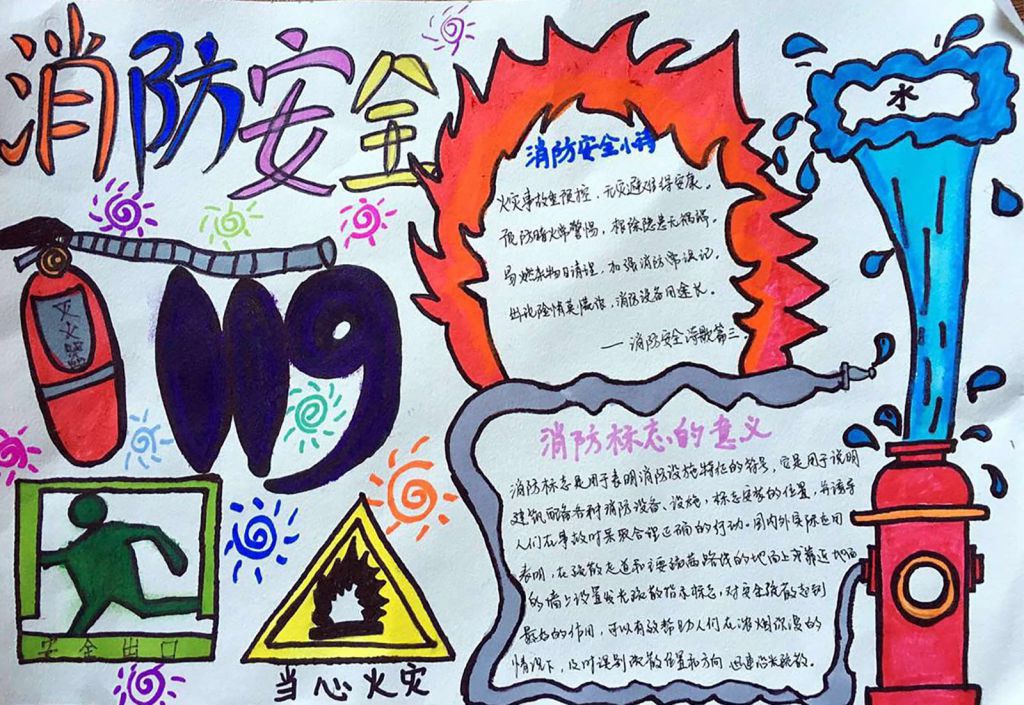 消防安全
灭火器
119
安全出口
当心火灾
消防安全小诗
火灾事故重预控,无灾避难得安康。
预防暗火常警惕,根除隐患无祸殃。
易燃杂物日清理,加强消防常谨记。
出现险情莫慌张,消防设备用途长。
—消防安全诗歌篇三
水
消防标志的意义
消防标志是用于表明消防设施特征的符号,它是用于说明
建筑配备各种消防设备、设施,标志安装的位置,并诱导
人们在事故时采取合理正确的行动。国内外实际应用
表明,在疏散走道和主要疏散路线的地面上或靠近地面
的墙上设置发光疏散指示标志,对安全疏散起到
很好的作用,可以有效帮助人们在浓烟弥漫的
情况下,及时识别疏散位置和方向,迅速沿